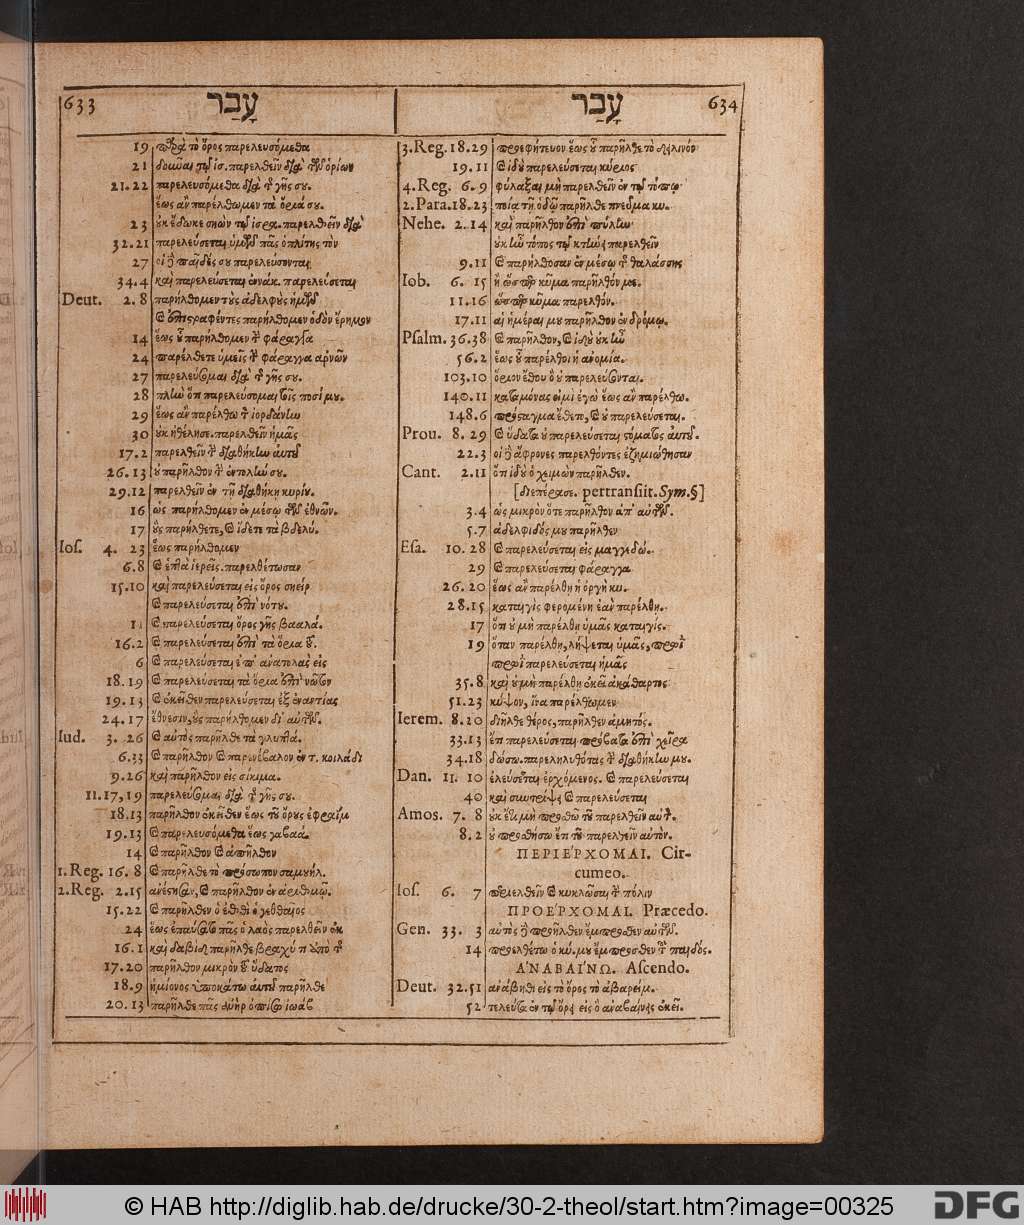 633 עָבַר
19 παρὰ τὸ ὄρος παρελευσόμεθα
21 δοῦναι τῷ ἰσ. παρελθεῖν διὰ τῶν ὁρίων
21.22 παρελευσόμεθα διὰ τ γῆς σου.
ἕως ἂν παρέλθωμεν τὰ ὅριά σου.
23 οὐκ ἔδωκε σηὼν τῷ ἰσρα. παρελθεῖν διὰ
32.21 παρελεύσεται ὑμῶν πᾶς ὁπλίτης τὸν
27 οἱ ἢ παῖδές σου παρελεύσονται
34.4 καὶ παρελεύσεται ἐννάκ. παρελεύσεται
Deut. 2.8 παρήλθομεν τοὺς ἀδελφοὺς ἡμῶν
ἐπιστραφέντες παρήλθομεν ὁδὸν ἔρημον
14 ἕως οὗ παρήλθομεν τ φάραγγα
24 παρέλθετε ὑμεῖς τ φάραγγα ἀρνῶν
27 παρελεύσομαι διὰ τ γῆς σου.
28 πλὴν ὅτι παρελεύσομαι τοῖς ποσί μου.
29 ἕως ἂν παρέλθω τ ἰορδάνην
30 οὐκ ἠθέλησε. παρελθεῖν ἡμᾶς
17.2 παρελθεῖν τ διαθήκην αὐτοῦ
26.13 οὐ παρῆλθον τ ἐντολήν σου.
29.12 παρελθεῖν ἐν τῇ διαθήκῃ κυρίου.
16 ὡς παρήλθομεν ἐν μέσῳ τῶν ἐθνῶν.
17 οὓς παρήλθετε, καὶ ἴδετε τὰ βδελύ.
Ios. 4. 23 ἕως παρήλθομεν
6.8 καὶ ἑπτὰ ἱερεῖς. παρελθέτωσαν
15.10 καὶ παρελεύσεται εἰς ὄρος σηείρ
καὶ παρελεύσεται ἐπὶ νότου.
11 καὶ παρελεύσεται ὄρος γῆς βααλά.
16.2 καὶ παρελεύσεται ἐπὶ τὰ ὅρια τοῦ.
6 καὶ παρελεύσεται ἐπ' ἀνατολὰς εἰς
18.19 καὶ παρελεύσεται τὰ ὅρια ἐπὶ νῶτον
19.13 καὶ ἐκεῖθεν παρελεύσεται ἐξ ἐναντίας
24.17 ἔθνεσιν, οὓς παρήλθομεν δι' αὐτῶν.
Iud. 3. 26 καὶ αὐτὸς παρῆλθε τὰ γλυπτά.
6.33 καὶ παρῆλθον καὶ παρενέβαλον ἐν τ. κοιλάδι
9.26 καὶ παρῆλθον εἰς σίκιμα.
11.17,19 παρελεύσομαι διὰ τ γῆς σου.
18.13 παρῆλθον ἐκεῖθεν ἕως τοῦ ὄρους ἐφραΐμ
19.13 καὶ παρελευσόμεθα ἕως γαβαά.
14 καὶ παρῆλθον καὶ ἀπῆλθον
1.Reg. 16.8 καὶ παρῆλθε τὸ πρόσωπον σαμουήλ.
2.Reg. 2.15 ἀνέστησαν, καὶ παρῆλθον ἐν ἀριθμῷ.
15.22 καὶ παρῆλθεν ὁ ἐθθὶ ὁ γεθθαῖος
24 ἕως ἐπαύσατο πᾶς ὁ λαὸς παρελθεῖν ἐκ
16.1 καὶ δαβὶδ παρῆλθε βραχύ τι ἀπὸ τ
17.20 παρῆλθον μικρὸν τοῦ ὕδατος
18.9 ἡμίονος ὑποκάτω αὐτοῦ παρῆλθε
20.13 παρῆλθε πᾶς ἀνὴρ ὀπίσω ἰωάβ
עָבַר 634
3.Reg. 18.29 προεφήτευον ἕως οὗ παρῆλθε τὸ δειλινόν
19.11 καὶ ἰδοὺ παρελεύσεται κύριος
4.Reg. 6.9 φύλαξαι μὴ παρελθεῖν ἐν τῷ τόπῳ
2.Para. 18.23 ποίᾳ τῇ ὁδῷ παρῆλθε πνεῦμα κυ.
Nehe. 2.14 καὶ παρῆλθον ἐπὶ πύλην
οὐκ ἦν τόπος τῷ κτήνει παρελθεῖν
9.11 καὶ παρήλθοσαν ἐν μέσῳ τ θαλάσσης
Iob. 6. 15 ἢ ὥσπερ κῦμα παρῆλθόν με.
11.16 ὥσπερ κῦμα παρελθόν.
17.11 αἱ ἡμέραι μου παρῆλθον ἐν δρόμῳ.
Psalm. 36.38 καὶ παρῆλθον, καὶ ἰδοὺ οὐκ ἦν
56.2 ἕως οὗ παρέλθοι ἡ ἀνομία.
103.10 ὅριον ἔθου ὃ οὐ παρελεύσονται.
140.11 καταμόνας εἰμὶ ἐγὼ ἕως ἂν παρέλθω.
148.6 πρόσταγμα ἔθετο, καὶ οὐ παρελεύσεται.
Prou. 8. 29 καὶ ὕδατα οὐ παρελεύσεται στόματος αὐτοῦ.
22.3 οἱ ἢ ἄφρονες παρελθόντες ἐζημιώθησαν
Cant. 2.11 ὅτι ἰδοὺ ὁ χειμὼν παρῆλθεν.
[διεπέρασε. pertransiit. Sym.§]
3.4 ὡς μικρὸν ὅτε παρῆλθον ἀπ' αὐτῶν.
5.7 ἀδελφιδός μου παρῆλθεν
Esa. 10. 28 καὶ παρελεύσεται εἰς μαγεδώ.
29 καὶ παρελεύσεται φάραγγα
26.20 ἕως ἂν παρέλθῃ ἡ ὀργὴ κυ.
28.15 καταιγὶς φερομένη ἐὰν παρέλθῃ.
17 ὅτι οὐ μὴ παρέλθῃ ὑμᾶς καταιγίς.
19 ὅταν παρέλθῃ, λήψεται ὑμᾶς, πρωῒ
πρωῒ παρελεύσεται ἡμᾶς
35.8 καὶ οὐ μὴ παρέλθῃ ἐκεῖ ἀκάθαρτος
51.23 κύψον, ἵνα παρέλθωμεν
Ierem. 8.20 διῆλθε θέρος, παρῆλθεν ἀμητός.
33.13 ἔτι παρελεύσεται πρόβατα ἐπὶ χεῖρα
34.18 δώσω. παρεληλυθότας τ διαθήκην μου.
Dan. 11. 10 ἐλεύσεται ἐρχόμενος. καὶ παρελεύσεται
40 καὶ συντρίψει καὶ παρελεύσεται
Amos. 7. 8 οὐκ ἔτι μὴ προσθῶ τοῦ παρελθεῖν αὐτ.
8.2 οὐ προσθήσω ἔτι τοῦ παρελθεῖν αὐτόν.
ΠΕΡΙΕΡΧΟΜΑΙ. Cir-
cumeo.
Ios. 6. 7 περιελθεῖν καὶ κυκλῶσαι τ πόλιν
ΠΡΟΕΡΧΟΜΑΙ. Præcedo.
Gen. 33. 3 αὐτὸς ἢ προῆλθεν ἔμπροσθεν αὐτῶν.
14 προελθέτω ὁ κύ. μου ἔμπροσθεν τ παιδός.
ΑΝΑΒΑΙΝΩ. Ascendo.
Deut. 32.51 ἀνάβηθι εἰς τὸ ὄρος τὸ ἀβαρείμ.
52 τελεύτα ἐν τῷ ὄρει εἰς ὃ ἀναβαίνεις ἐκεῖ.
© HAB http://diglib.hab.de/drucke/30-2-theol/start.htm?image=00325
DFG